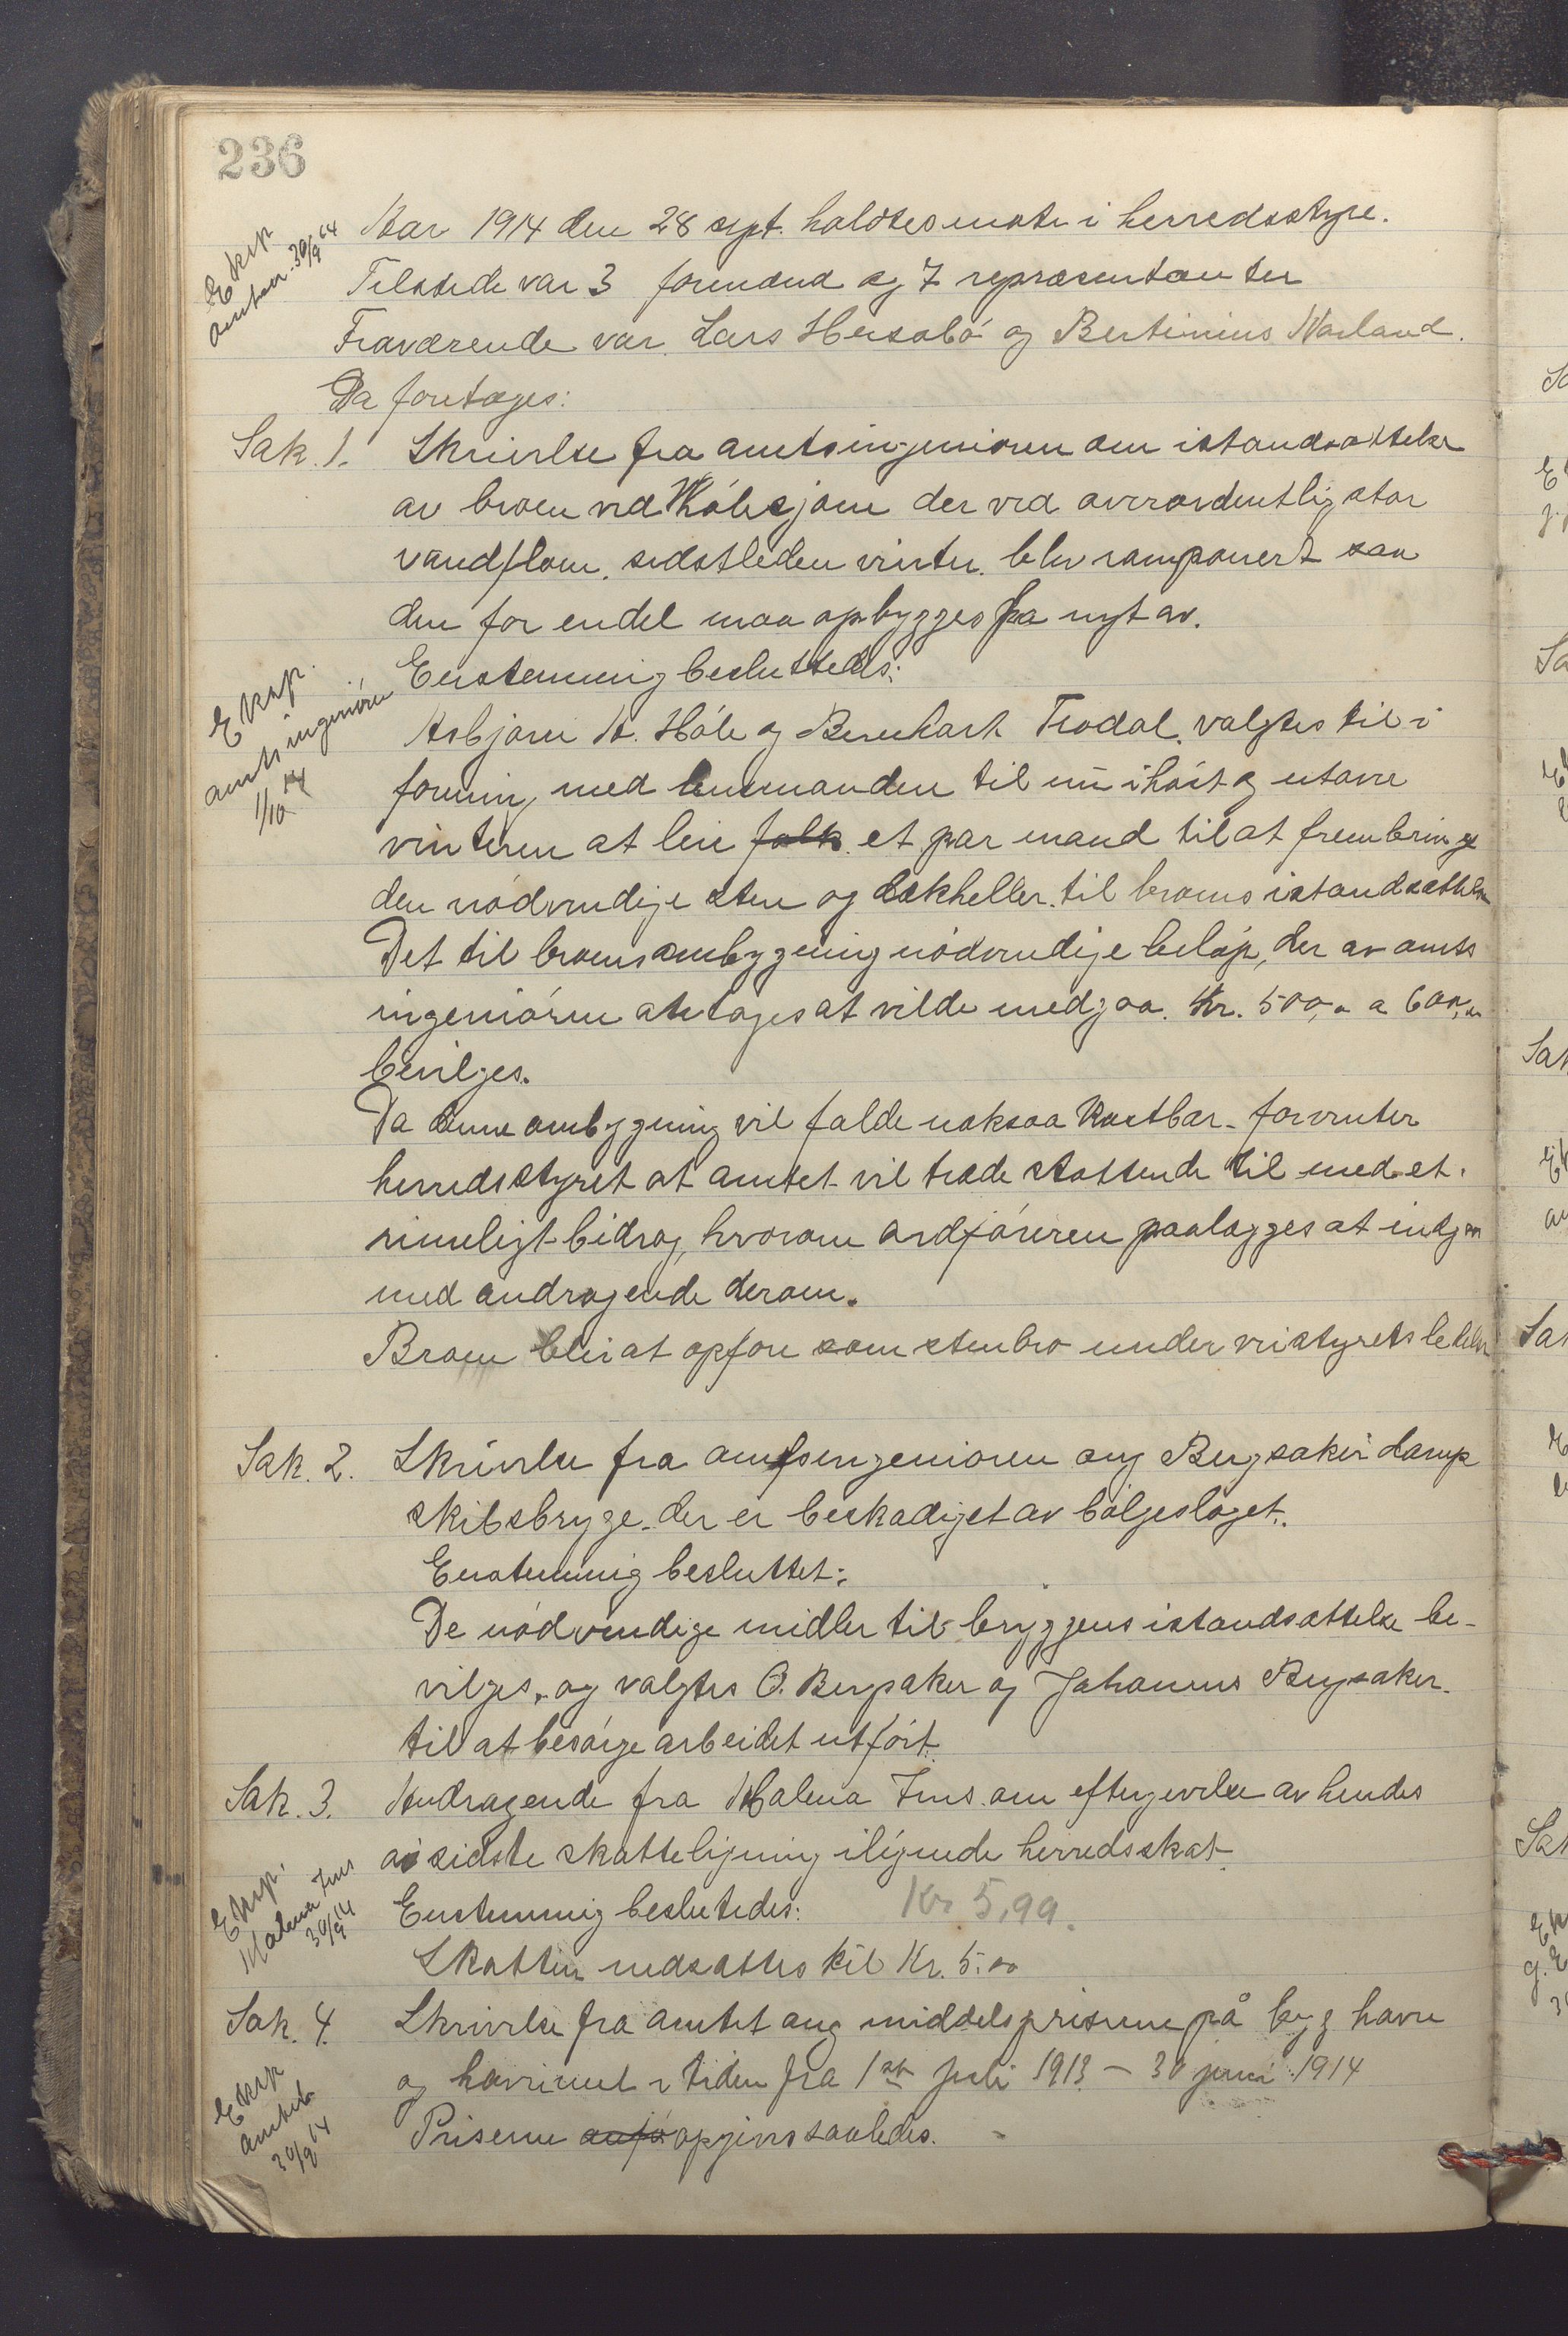 236
Eksp
Amtet 30/9 14
Aar 1914 den 28 sept. holdtes møte i herredsstyre.
Tilstede var 3 formænd og 7 repræsentanter
Fraværende var Lars Hersabø og Bertinius Narland.
Da foretoges:
Sak. 1. Skrivelse fra amtsingeniøren om istandsættelse
av broen ved Hålesjøen der ved overordentlig stor
vandflom. sidstleden vinter. blev ramponert saa
den for endel maa opbygges fra nyt av.
Eksp.
amtsingeniøren
1/10 14
Enstemmig besluttedes:
Asbjørn A. Håle og Bernhart Trodal. valgtes til i
forening med lensmanden til nu i høst og utover
vinteren at leie folk. et par mand til at frembringe
den nødvendige sten og dækheller. til broens istandsættelse
Det til broens ombygning nødvendige beløp, der av amts
ingeniøren antages at vilde medgaa. Kr. 500,00 a 600,00
bevilges.
Da denne ombygning vil falde noksaa kostbar - forventer
herredsstyret at amtet vil træde støttende til med et
rimeligt bidrag, hvorom ordføreren paalægges at indgaa
med andragende derom.
Broen blir at opføre som stenbro under veistyrets ledelse
Sak. 2. Skrivelse fra amtsingeniøren ang Bergsaker damp
skibsbryge. der er beskadiget av bølgeslaget.
Enstemmig besluttet:
De nødvendige midler til bryggens istandsættelse be-
vilges, og valgtes O. Bergsaker og Johannes Bergsaker.
til at besørge arbeidet utført.
Sak. 3. Andragende fra Malena Jens om eftergivelse av hendes
ai sidste skatteligning ilignede herredsskat.
Eksp.
Malena Jens
30/9 14
Enstemmig beslutedes: Kr 5,99.
Skatten nedsættes til Kr. 5.00
Sak. 4. Skrivelse fra amtet ang middelsprisene på byg havre
og havremel i tiden fra 1ste juli 1913 – 30 juni 1914
Eksp
Amtet
30/9 14
Priserne opgives saaledes.